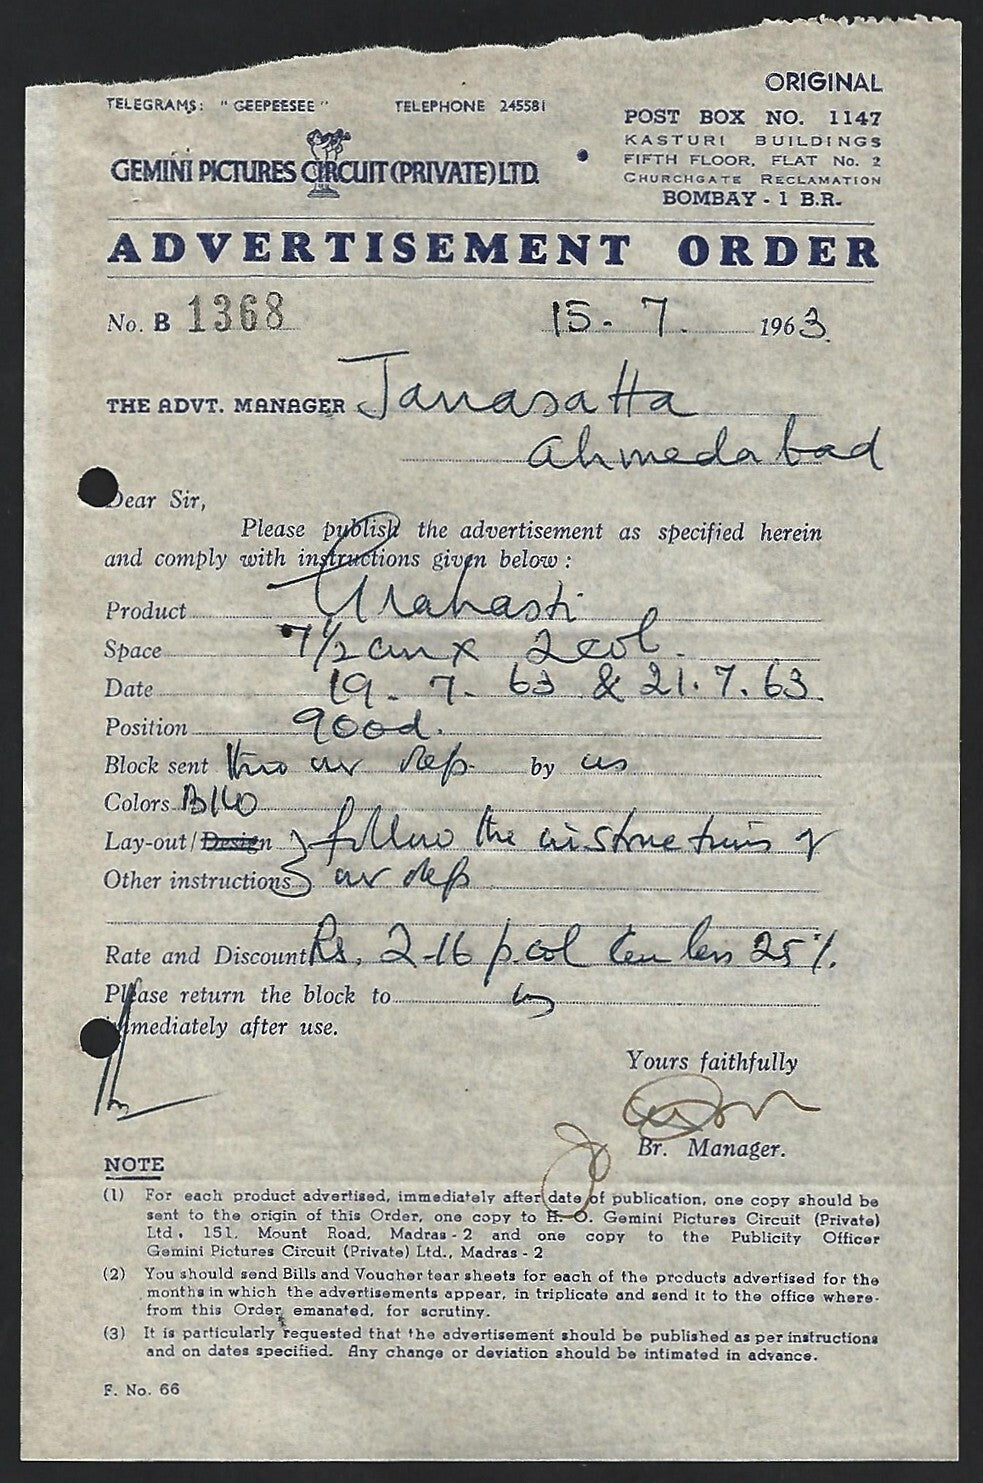 ORIGINAL
TELEGRAMS: "GEEPEESEE" TELEPHONE 245581
GEMINI PICTURES CIRCUIT (PRIVATE) LTD.
POST BOX NO. 1147
KASTURI BUILDINGS
FIFTH FLOOR, FLAT No. 2
CHURCHGATE RECLAMATION
BOMBAY - 1 B.R.
ADVERTISEMENT ORDER
No. B 1368 15. 7. 1963.
THE ADVT. MANAGER Janasatta
Ahmedabad
Dear Sir,
Please publish the advertisement as specified herein
and comply with instructions given below:
Product
Space 7½ cm x 2 col.
Date 19. 7. 63 & 21. 7. 63.
Position good.
Block sent thro our rep. by us
Colors
Lay-out/Design } follow the instructions of
Other instructions } our rep
Rate and Discount Rs. 2-16 p. col cm less 25%.
Please return the block to us
immediately after use.
Yours faithfully
Br. Manager.
NOTE
(1) For each product advertised, immediately after date of publication, one copy should be
sent to the origin of this Order, one copy to H. O. Gemini Pictures Circuit (Private)
Ltd. 151, Mount Road, Madras - 2 and one copy to the Publicity Officer
Gemini Pictures Circuit (Private) Ltd., Madras - 2
(2) You should send Bills and Voucher tear sheets for each of the products advertised for the
months in which the advertisements appear, in triplicate and send it to the office where-
from this Order emanated, for scrutiny.
(3) It is particularly requested that the advertisement should be published as per instructions
and on dates specified. Any change or deviation should be intimated in advance.
F. No. 66